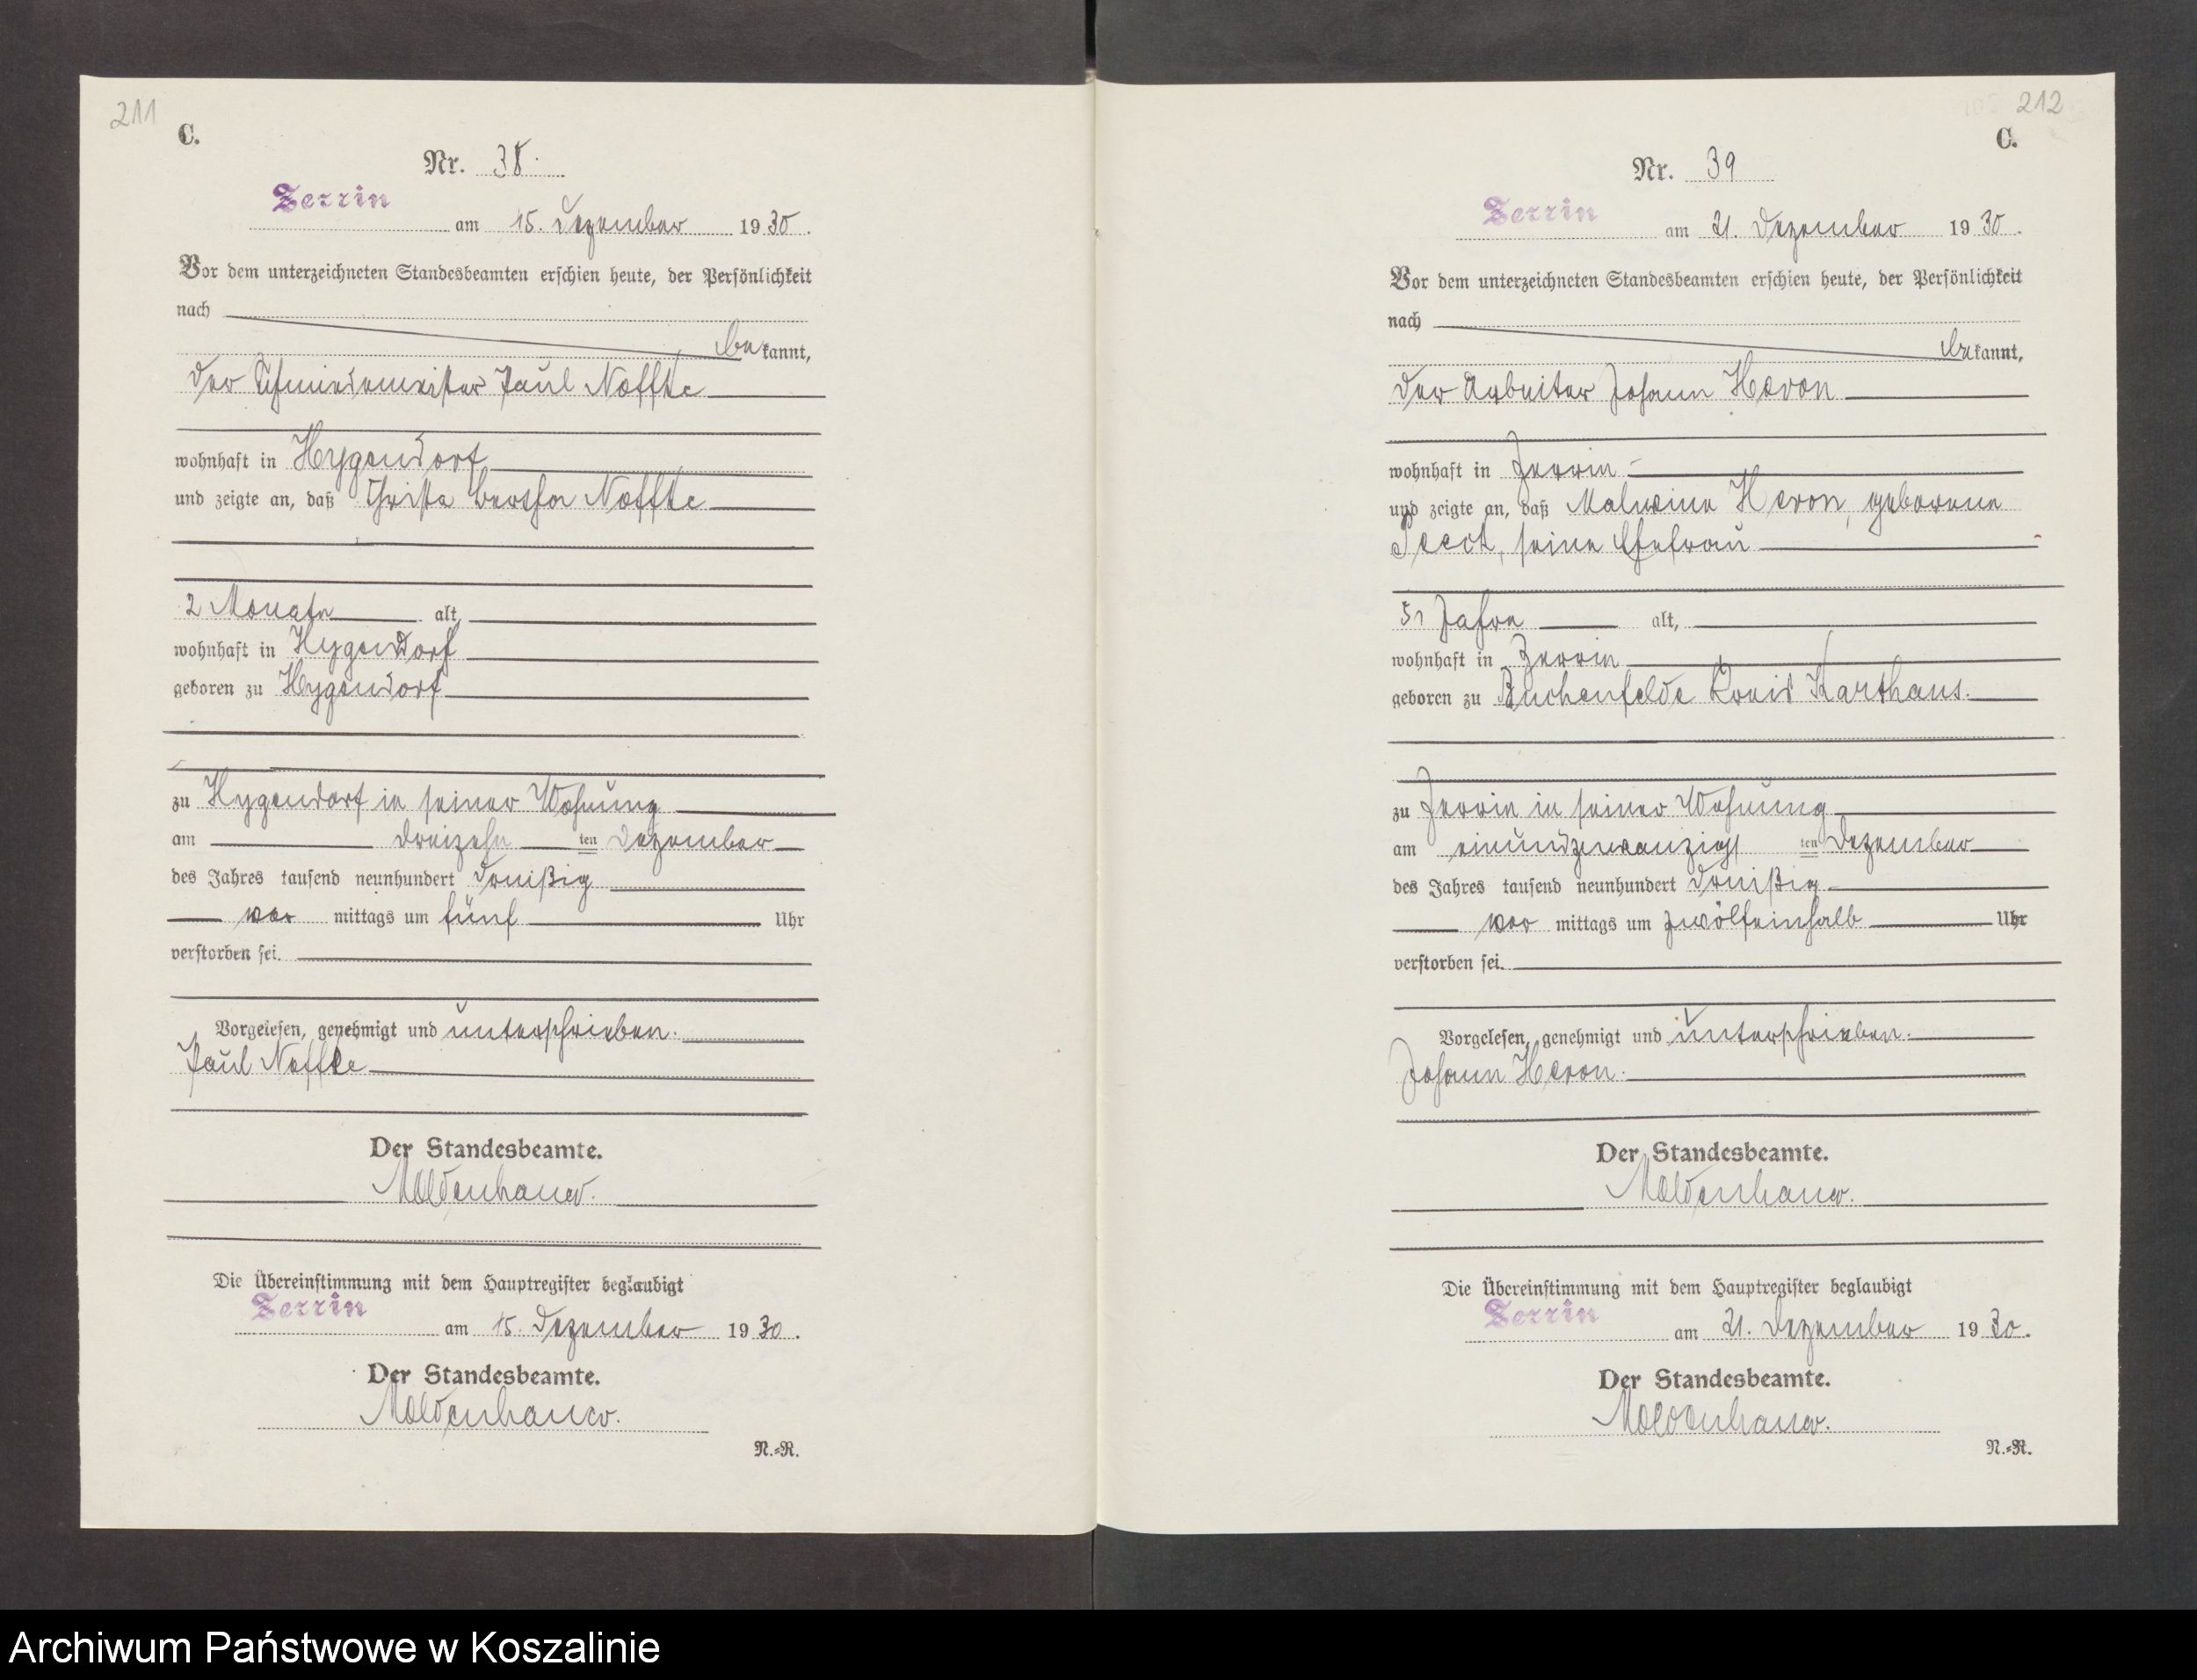 211
C.
Nr. 38.
Zerrin
am 15. Dezember 1930.
Vor dem unterzeichneten Standesbeamten erschien heute, der Persönlichkeit
nach
bekannt,
der Schmiedemeister Paul Noffke
wohnhaft in Hygendorf
und zeigte an, daß Christa Bertha Noffke
2 Monate alt,
wohnhaft in Hygendorf
geboren zu Hygendorf
zu Hygendorf in seiner Wohnung
am dreizehn ten Dezember
des Jahres tausend neunhundert dreißig
vor mittags um fünf Uhr
verstorben sei.
Vorgelesen, genehmigt und unterschrieben.
Paul Noffke
Der Standesbeamte.
Moldenhauer.
Die Übereinstimmung mit dem Hauptregister beglaubigt
Zerrin
am 15. Dezember 1930.
Der Standesbeamte.
Moldenhauer.
N.-R.
212
C.
Nr. 39
Zerrin
am 21. Dezember 1930.
Vor dem unterzeichneten Standesbeamten erschien heute, der Persönlichkeit
nach
bekannt,
der Arbeiter Johann Heron
wohnhaft in Zerrin
und zeigte an, daß Malwine Heron, geborene
seine Ehefrau
51 Jahre alt,
wohnhaft in Zerrin
geboren zu Buchenfelde Kreis Karthaus.
zu Zerrin in seiner Wohnung
am einundzwanzigsten Dezember
des Jahres tausend neunhundert dreißig
vor mittags um zwölfeinhalb Uhr
verstorben sei.
Vorgelesen, genehmigt und unterschrieben.
Johann Heron.
Der Standesbeamte.
Moldenhauer.
Die Übereinstimmung mit dem Hauptregister beglaubigt
Zerrin
am 21. Dezember 1930.
Der Standesbeamte.
Moldenhauer.
N.-R.
Archiwum Państwowe w Koszalinie